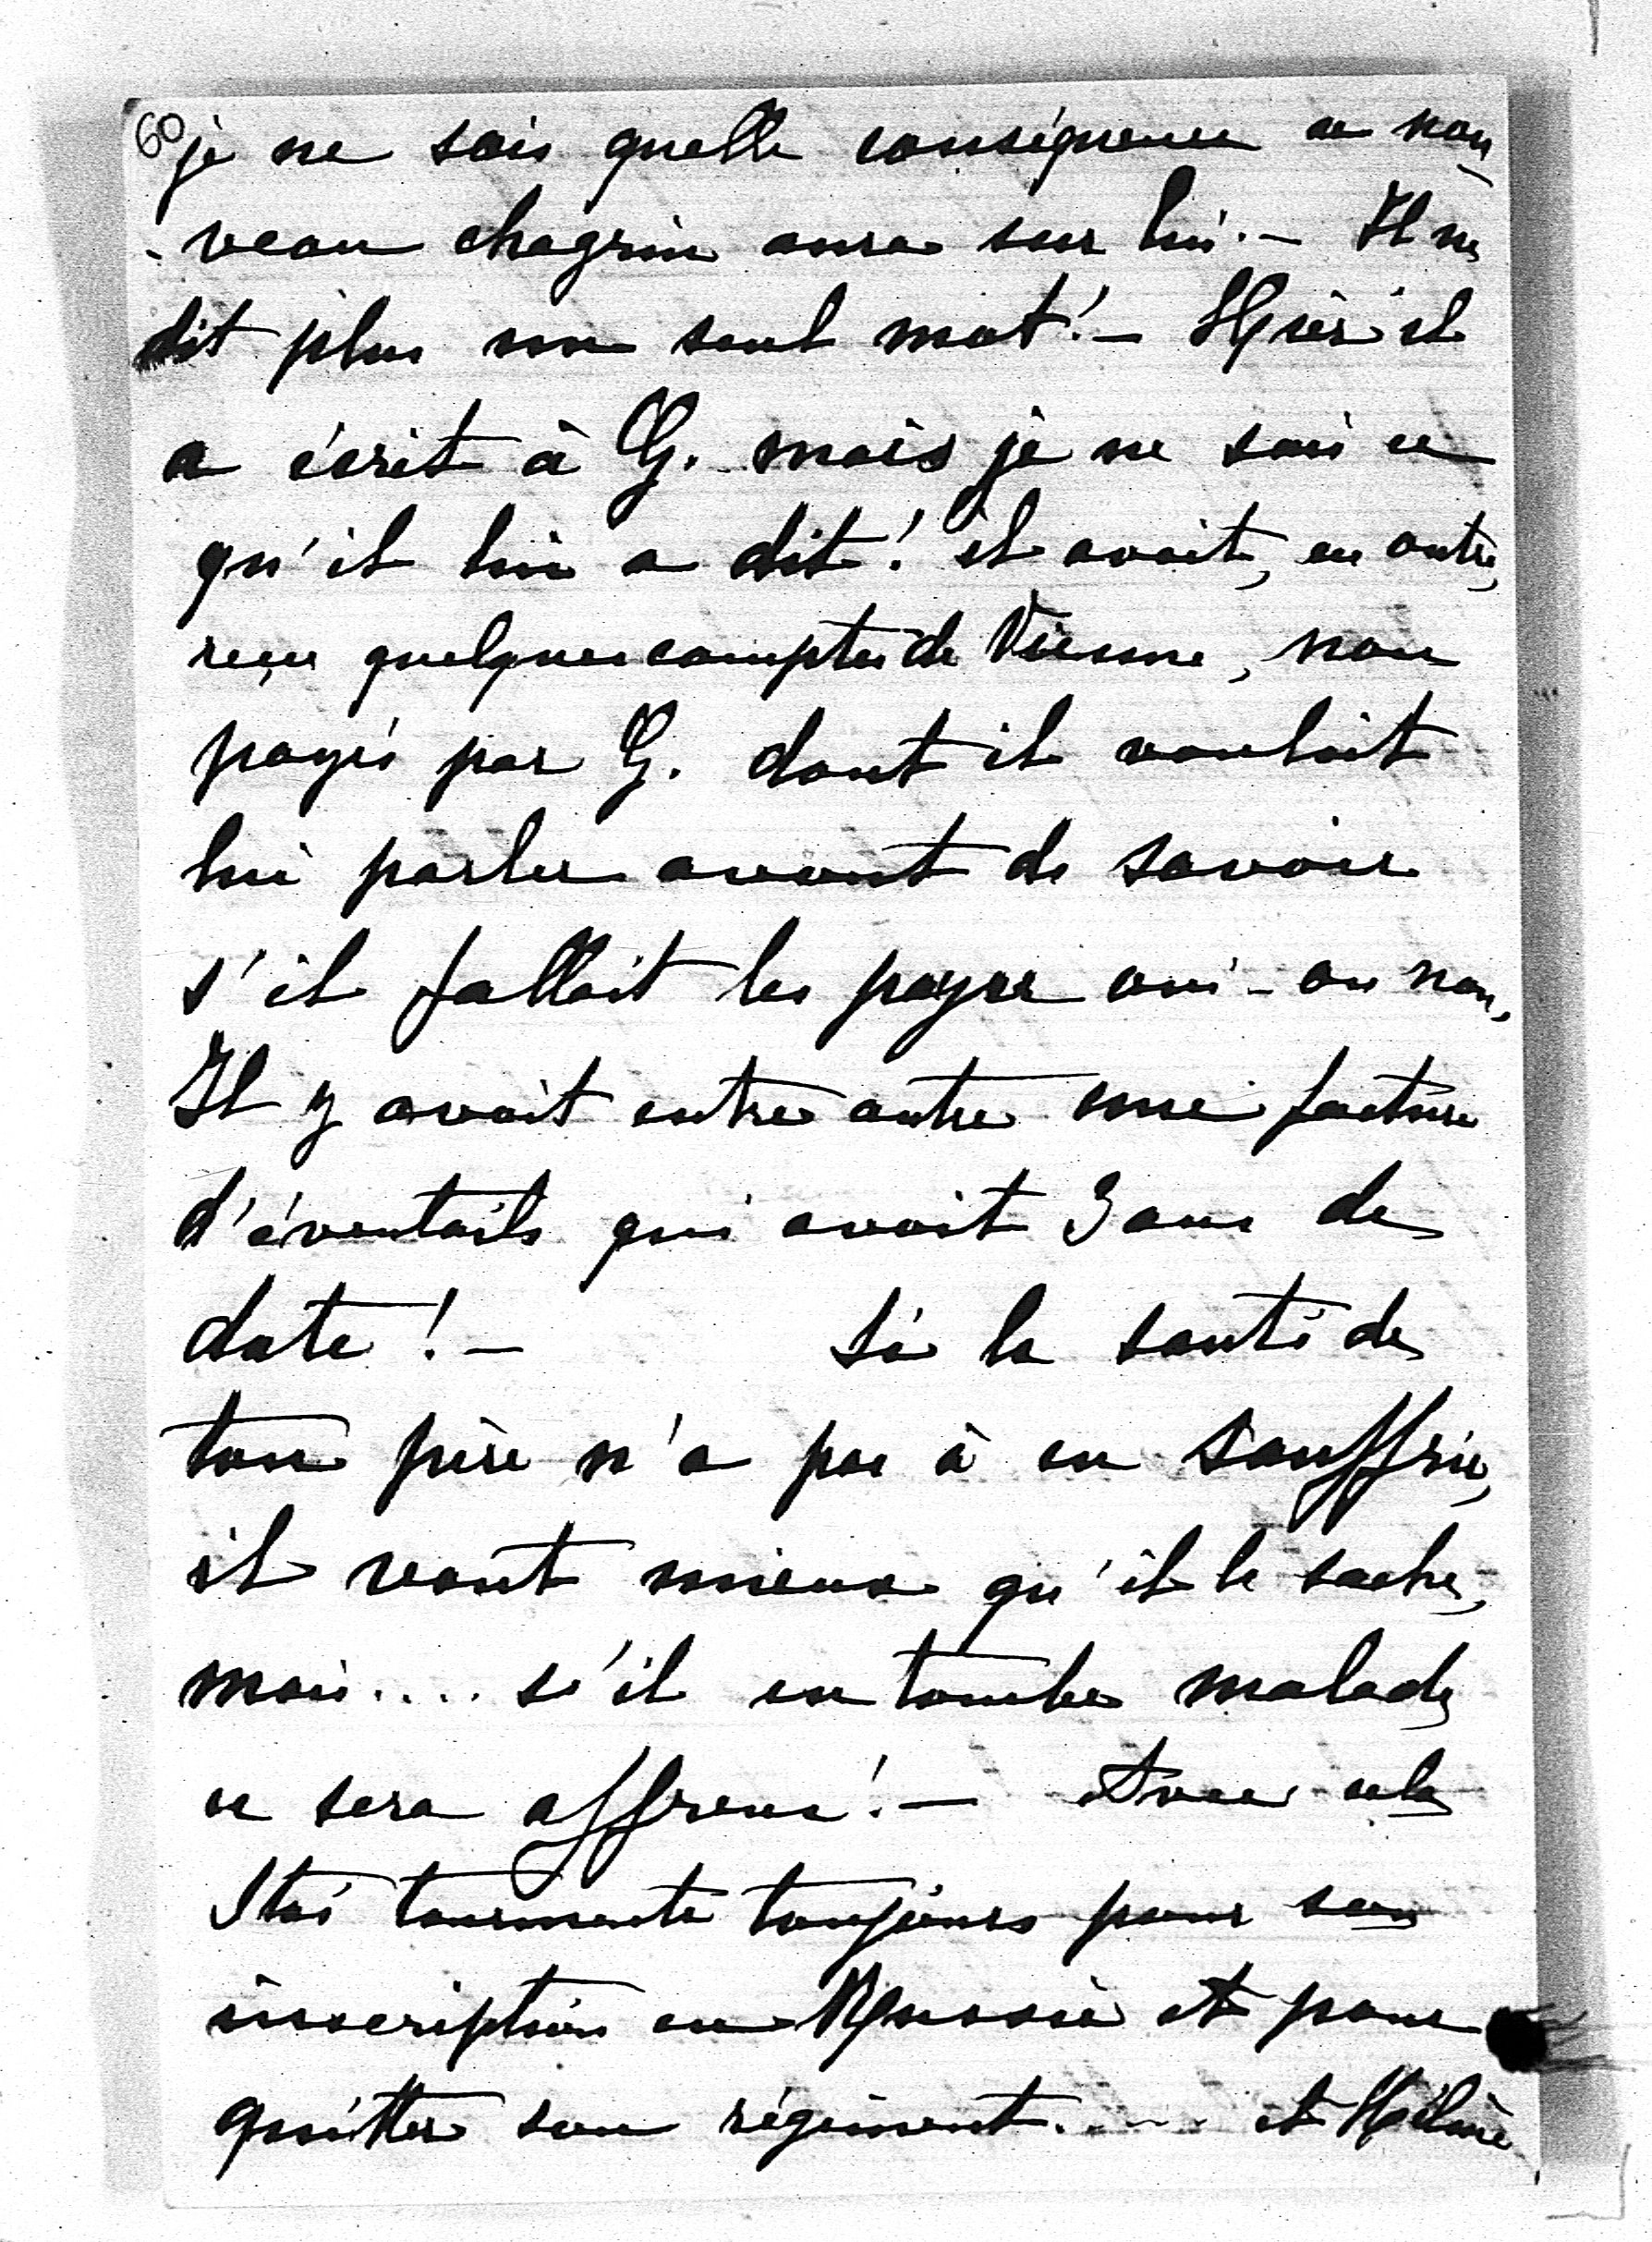 60
je ne sais quelle conséquence ce nou
-veau chagrin aura sur lui. – Il ne
dit plus un seul mot! – Hier il
a écrit à G. mais je ne sais ce
qu'il lui a dit! il avait, en outre,
reçu quelques comptes de Vienne, non
payés par G. dont il voulait
lui parler avant de savoir
s'il fallait les payer oui – ou non,
Il y avait entre autre une facture
d'éventails qui avait 3 ans de
date! – Si la santé de
ton père n'a pas à en souffrir,
il vaut mieux qu'il le sache,
mais.... s'il en tombe malade
ce sera affreux! – Avec cela
tourmente toujours pour son
inscription en Russie et pour
quitter son régiment..... et Hélène